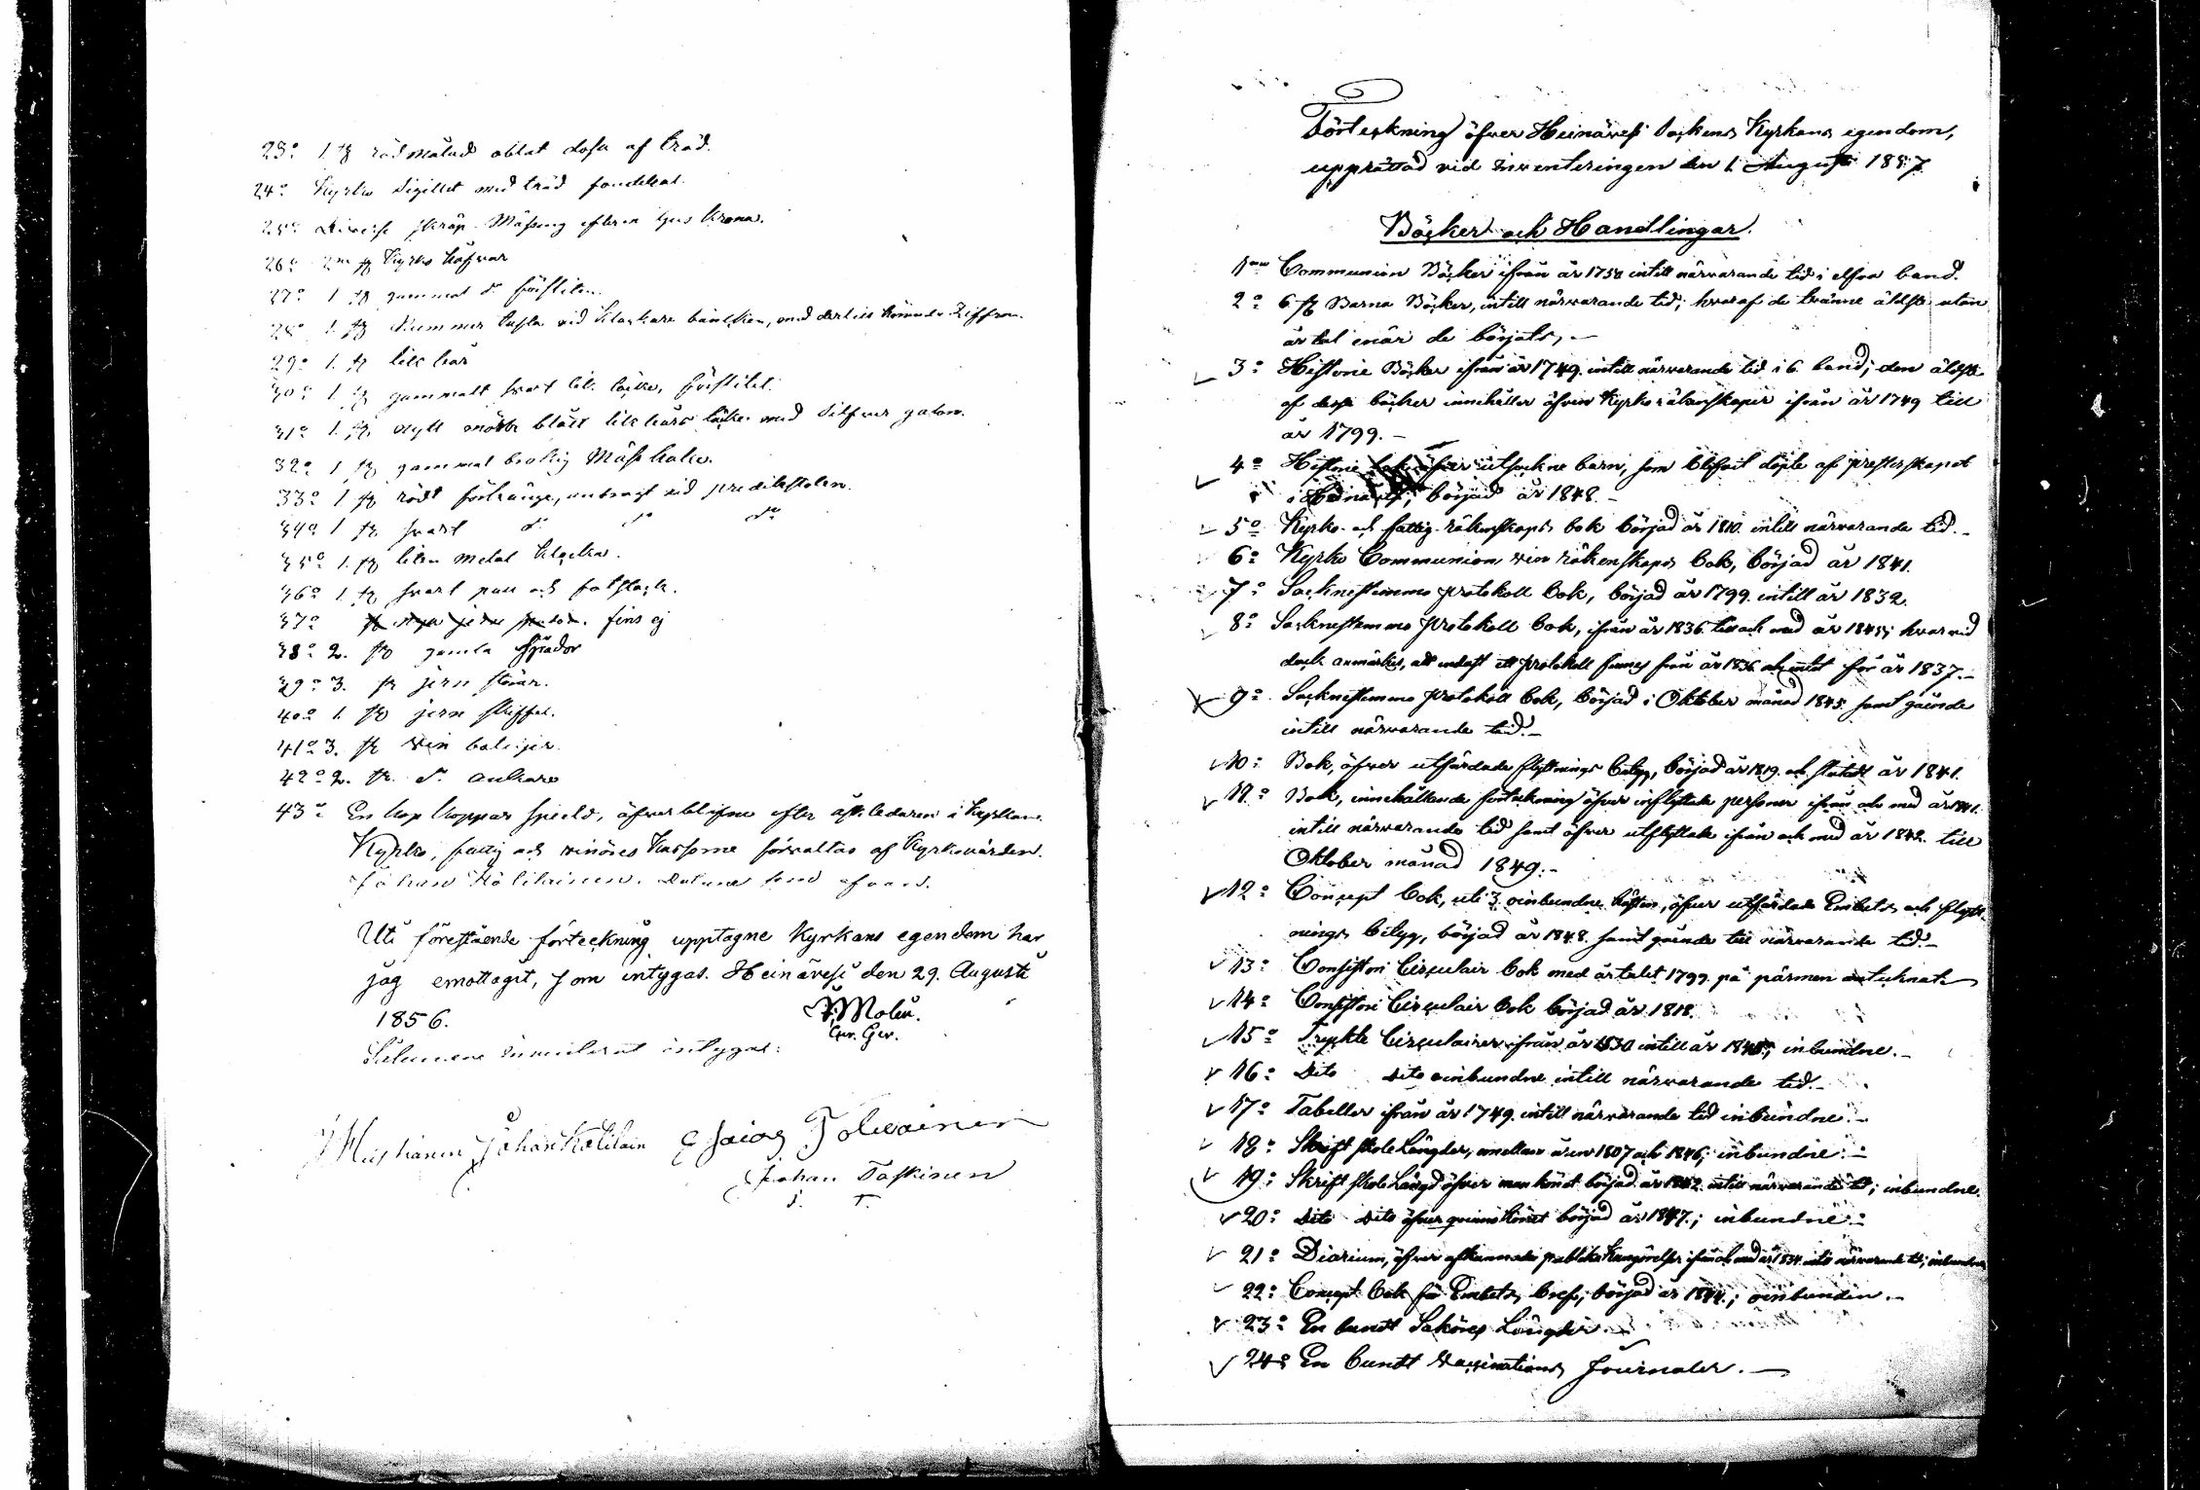 23o 1 st rödmålad oblat dosa af träd.
24o Kyrko Sigillet med träd foudral.
25o Diverse skräp Mässing efter en ljus krona.
26o 2ne st Kyrko håfvar
27o 1 st gammal do försliten.
28o 1. st Nummer tafla vid Klockare bänken, med dertill hörande Ziffror.
29o 1. st lik bår
30o 1 st gammalt svart lik täcke, förslitit.
31o 1. st nytt mörk blått lik bårs täcke med Silfver galon.
32o 1 st gammal brokig Mässhake.
33o 1 st rödt förhänge, anbragt vid predikstolen.
34o 1 st svart do do do
35o 1. st liten metal klocka.
36o 1. st svart
37o fins ej
38o 2. st gamla Spador
39o 3. st jern störar.
40o 1. st jern skiffel.
41o 3. st vin bateljer.
42o 2. st do ankare
43o En kop koppar speeld, öfverblifne efter åskledaren i kyrkan.
Kyrko, fattig och vinöres kassorne förvaltas af Kyrkovärden
Johan Kolilainen.
Uti förestående förteckning upptagne Kyrkans egendom har
jag emottagit, som intygas. Heinävesi den 29. Augusti
1856. F. Molin.
Cur. Ger.
intygar:
Johan Kolilain Esaias Tolvainen
Johan Taskinen
J. T.
Förteckning öfver Heinävesi Sockens Kyrkans egendom,
upprättad vid inventeringen den 1 Augusti 1857
Böcker och Handlingar.
1mo Communion Böcker ifrån år 1758 intill närvarande tid i elfva band.
2o 6 st Barna Böcker, intill närvarande tid; hvaraf de tvänne äldste utan
årtal når de börjats, -
3o Historie Böcker ifrån år 1749. intill närvarande tid i 6. band; den äldste
af desse böcker innehåller äfven Kyrko räkenskaper ifrån år 1749 till
år 1799. -
4o Historie bok öfver utsockne barn, som blifvit döpte af presterskapet
i Heinävesi, börjad år 1848. -
5o Kyrko- och fattig-räkenskaps bok börjad år 1810. intill närvarande tid. -
6o Kyrko Communion vin räkenskaps bok, börjad år 1841.
7o Socknestämmo protokoll bok, börjad år 1799. intill år 1832.
8o Sockenstämmo protokoll bok, ifrån år 1836. till och med år 1845; hvarvid
dock anmärkes, att endast ett protokoll finnes från år 1836. och intet för år 1837. -
9o Sockenstämmo protokoll bok, börjad i Oktober månad 1845. samt gående
intill närvarande tid. -
10o Bok, öfver utfärdade flyttnings betyg, börjad år 1819. och slutad år 1841.
11o Bok, innehållande förteckning öfver inflyttade personer ifrån och med år 1841.
intill närvarande tid samt öfver utflyttade ifrån och med år 1842. till
Oktober månad 1849. -
12o Concept bok, uti 3. oinbundne häften, öfver utfärdade Embets och flytt-
nings betyg, börjad år 1848. samt gående till närvarande tid. -
13o Consistorii Circulair bok med årtalet 1799. på pärmen antecknat
14o Consistorii Circulair bok börjad år 1818.
15o Tryckte Circulairer ifrån år 1830 intill år 1845; inbundne. -
16o Dito Dito oinbundne intill närvarande tid. -
17o Tabeller ifrån år 1749. intill närvarande tid inbundne. -
18o Skrift skole Längder, emellan åren 1807 och 1846; inbundne. -
19o Skrift skole Längd öfver mankönet börjad år 1842 intill närvarande tid; inbunden.
20o Dito Dito öfver qvinnokönet börjad år 1847.; inbunden. -
21o Diarium, öfver afkunnade publika Kungörelser ifrån och med år 1834 intill närvarande tid; inbunden
22o Concept bok för Embets bref; börjad år 1844.; oinbunden. -
23o En bundt Saköres Längder. -
24o En bundt Vaccinations Journaler. -